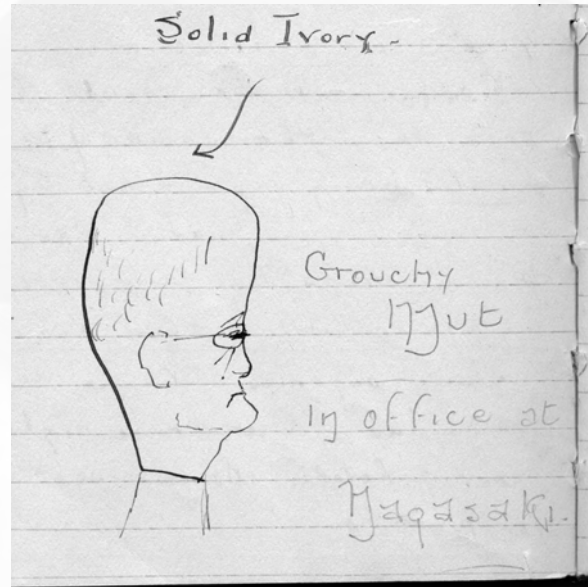 Solid Ivory.
Grouchy
Nut
In office at
Nagasaki.